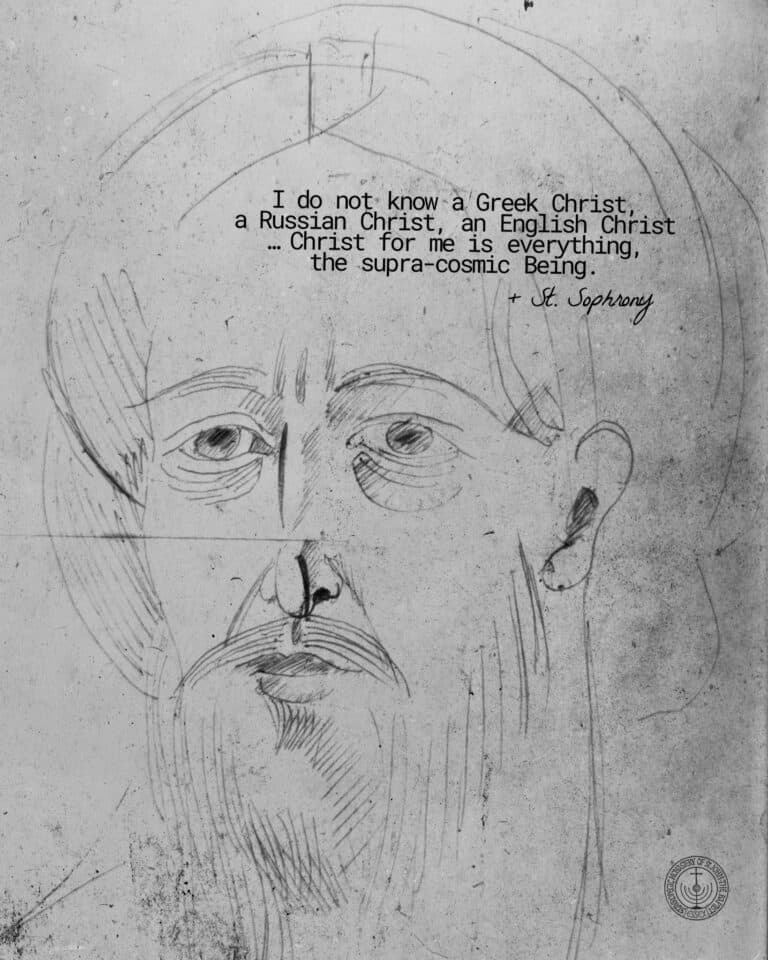 I do not know a Greek Christ,
a Russian Christ, an English Christ
… Christ for me is everything,
the supra-cosmic Being.
+ St. Sophrony